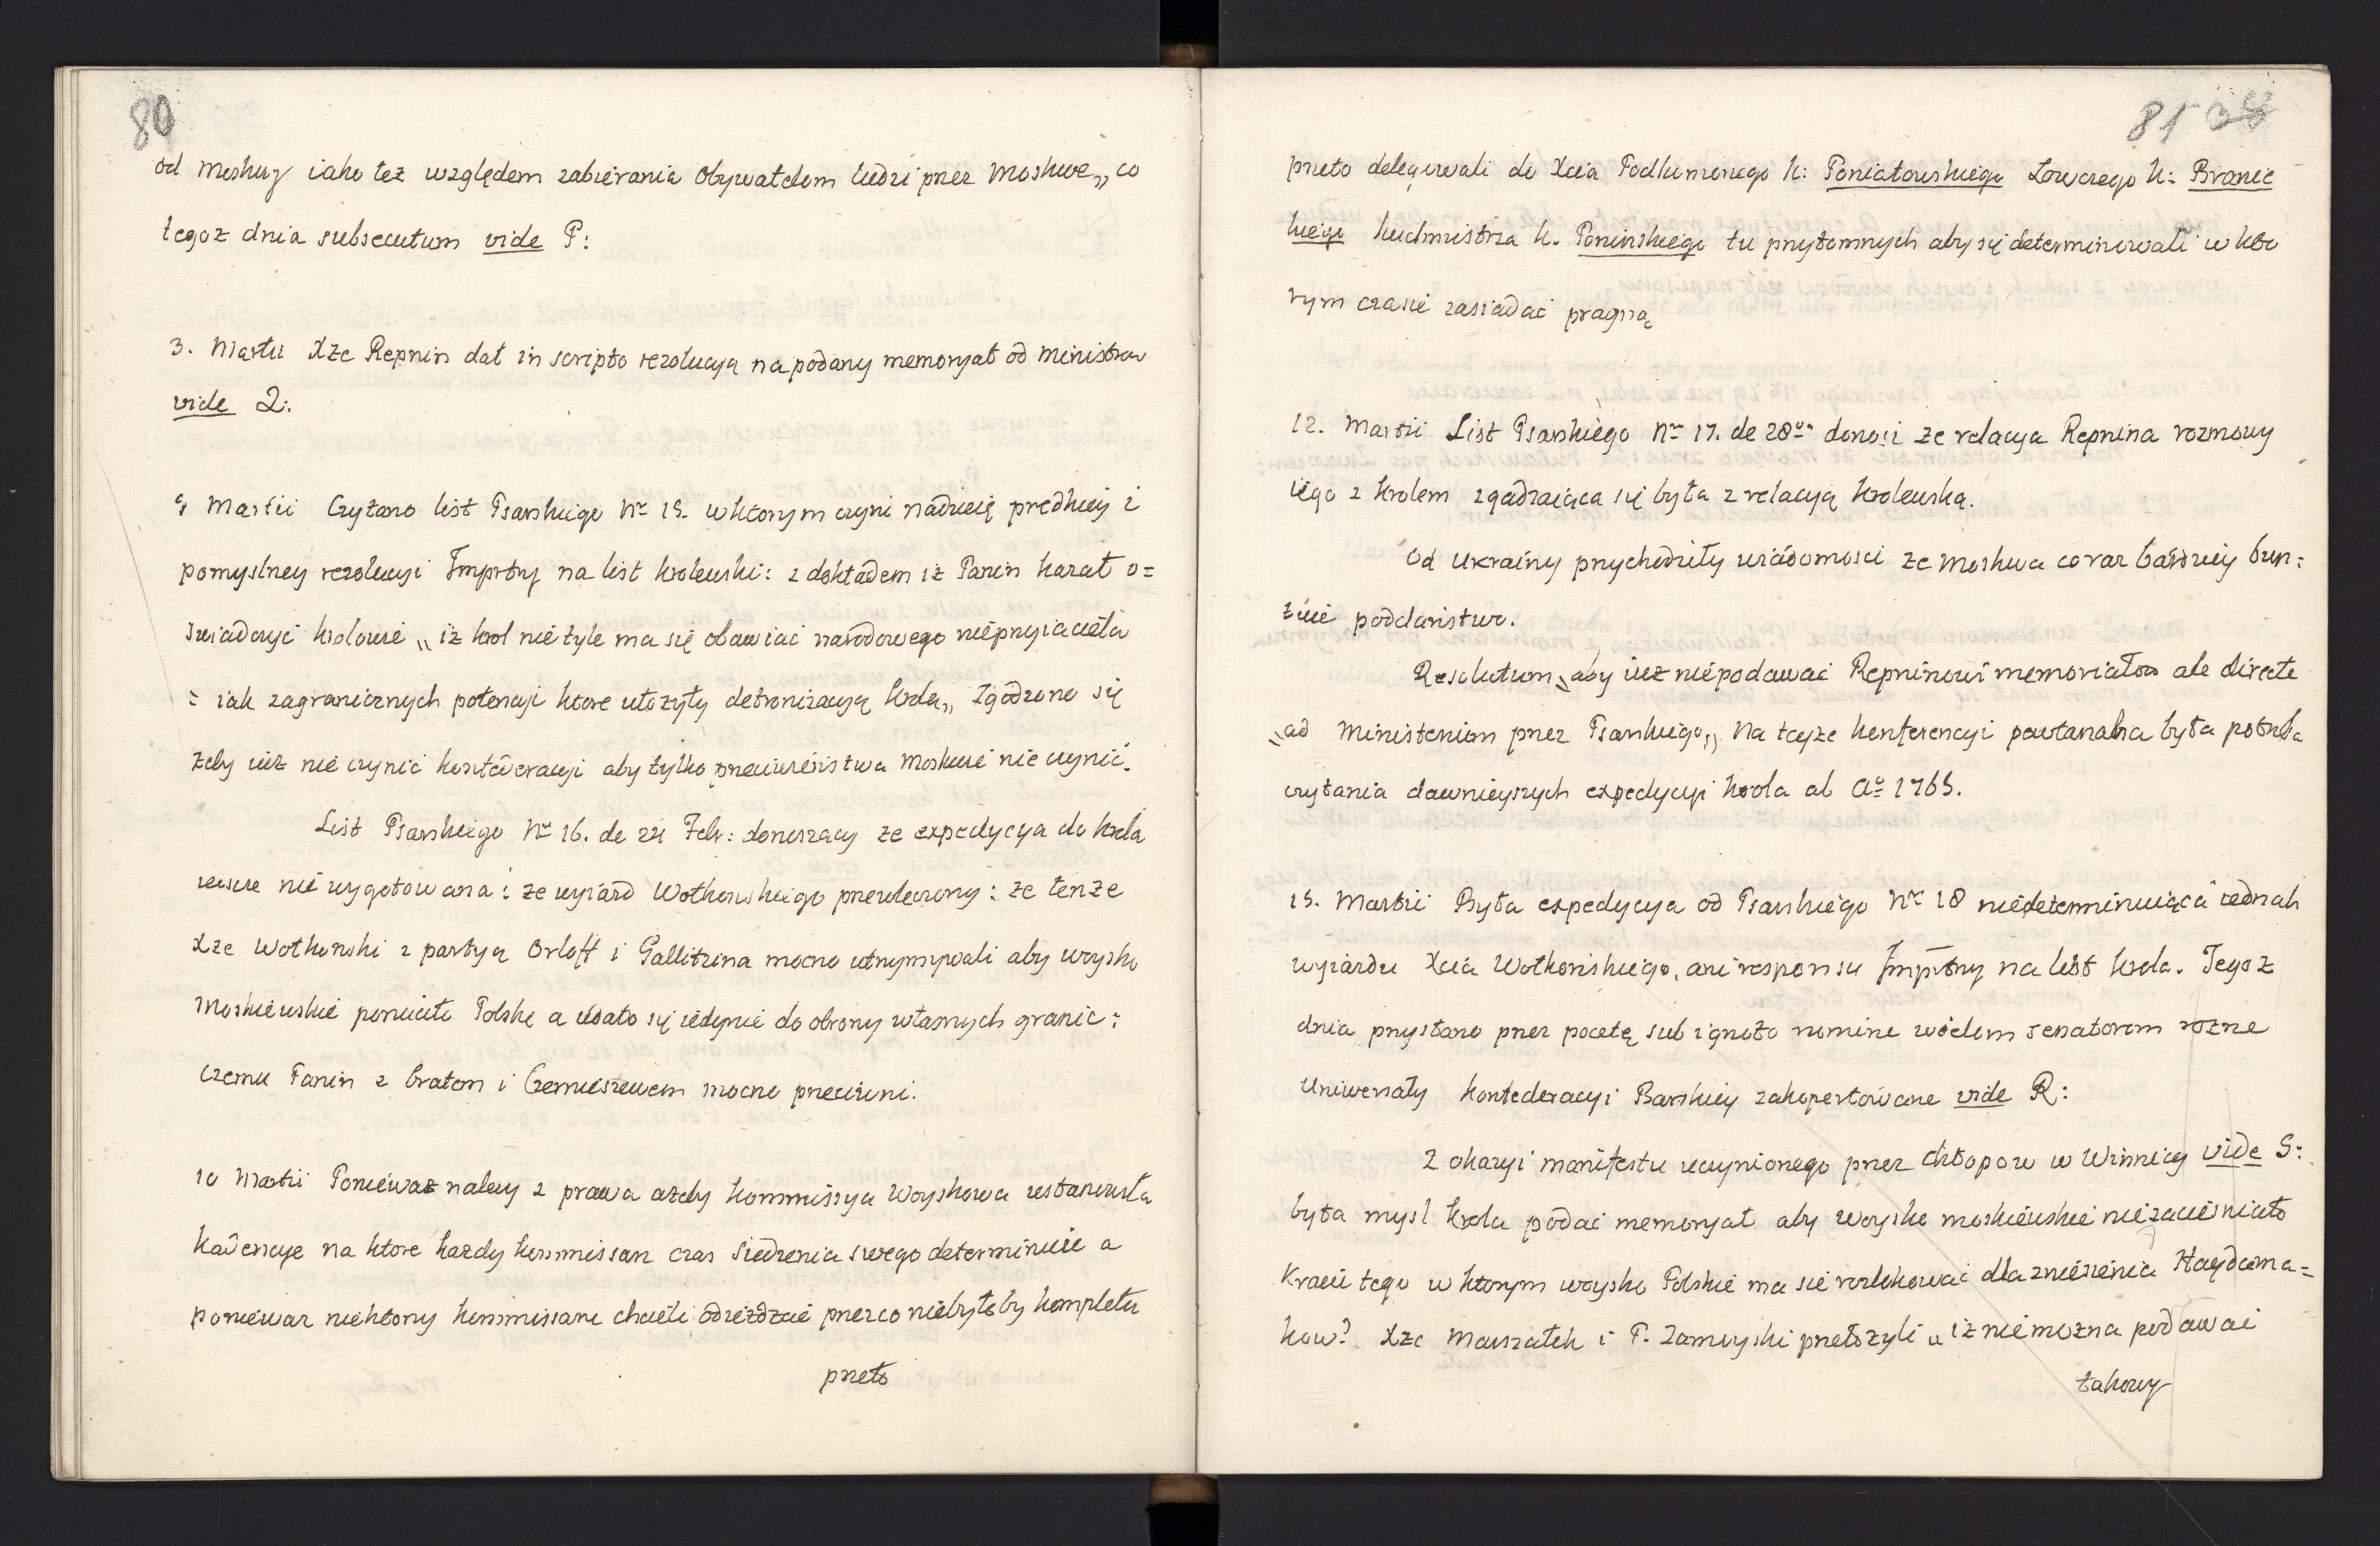 80
od Moskwy iako też względem zabierania Obywatelom ludzi przez Moskwę„ co
tegoż dnia subsecutum vide P:
3. Martii Xże Repnin dał in scripto rezolucyą na podany memoryał od Ministrow
vide Q:
9 Martii Czytano list Psarskiego Nr 15. w ktorym czyni nadzieię prędkiey i
pomyslney rezolucyi Imprtny na list krolewski: z dokładem iż Panin kazał o=
swiadczyć krolowi „ iż krol nie tyle ma się obawiać narodowego nieprzyiaciela
= iak zagranicznych potencyi ktore ułożyły detronizacyą krola„ Zgodzono się
żeby iuż nie czynić konfederacyi aby tylko przeciwieństwa Moskwie nie czynić.
List Psarskiego Nr 16. de 24 Febr: donoszący że expedycya do krola
iescze nie wygotowana: że wyiazd Wołkonskiego przewleczony: że tenże
Xże Wołkonski z partyą Orloff i Gallitzina mocno utrzymywali aby woysko
Moskiewskie porzuciło Polskę a udało się iedynie do obrony własnych granic:
czemu Panin z bratem i Czerniszewem mocno przeciwni.
10 Martii Ponieważ należy z prawa ażeby Kommissya Woyskowa ustanowiła
kadencye na ktore każdy kommissarz czas siedzenia swego determinuie a
ponieważ niektorzy kommissarze chcieli odieżdżać przez co nie byłoby kompletu
przeto
81 38
przeto delegowali do Xcia Podkomorzego K: Poniatowskiego Łowczego K: Branic
kiego kuchmistrza K. Poninskiego tu przytomnych aby się determinowali w kto
rym czasie zasiadać pragną
12. Martii List Psarskiego Nr 17. de 28va donosi że relacya Repnina rozmowy
iego z krolem zgadzaiąca się była z relacyą krolewską.
Od Ukrainy przychodziły wiadomosci że Moskwa coraz bardziey bun:
tuie poddaństwo.
Resolutum „aby iuż nie podawać Repninowi memoriałow ale directe
„ad Ministerium przez Psarskiego„ Na teyże konferencyi powtarzana była potrzeba
czytania dawnieyszych expedycyi krola ab Ao 1765.
15. Martii Była expedycya od Psarskiego Nr 18 niedeterminuiąca iednak
wyiazdu Xcia Wołkońskiego, ani responsu Imprtny na list krola. Tegoż
dnia przysłano przez pocztę sub ignoto nomine wielom senatorom rożne
Uniwersały Konfederacyi Barskiey zakopertowane vide R:
Z okazyi manifestu uczynionego przez chłopow w Winnicy vide S:
była mysl krola podać memoryał aby woysko moskiewskie nie zacieśniało
kraiu tego w ktorym woysko Polskie ma się rozlokować dla zniesienia Haydama=
kow? Xże Marszałek i P. Zamoyski przełożyli „ iż nie można podawać
takowy